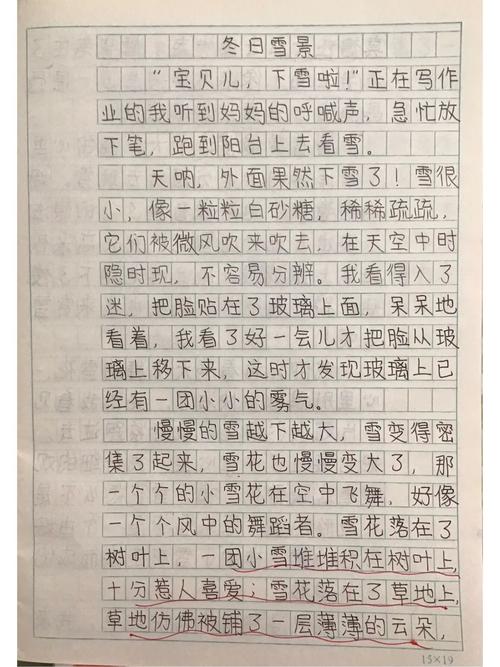 冬日雪景
“宝贝儿，下雪啦！”正在写作
业的我听到妈妈的呼喊声，急忙放
下笔，跑到阳台上去看雪。
天呐，外面果然下雪了！雪很
小，像一粒粒白砂糖，稀稀疏疏，
它们被微风吹来吹去，在天空中时
隐时现，不容易分辨。我看得入了
迷，把脸贴在了玻璃上面，呆呆地
看着，我看了好一会儿才把脸从玻
璃上移下来，这时才发现玻璃上已
经有一团小小的雾气。
慢慢的雪越下越大，雪变得密
集了起来，雪花也慢慢变大了，那
一个个的小雪花在空中飞舞，好像
一个个风中的舞蹈者。雪花落在了
树叶上，一团小雪堆堆积在树叶上，
十分惹人喜爱；雪花落在了草地上，
草地仿佛被铺了一层薄薄的云朵，
15×19